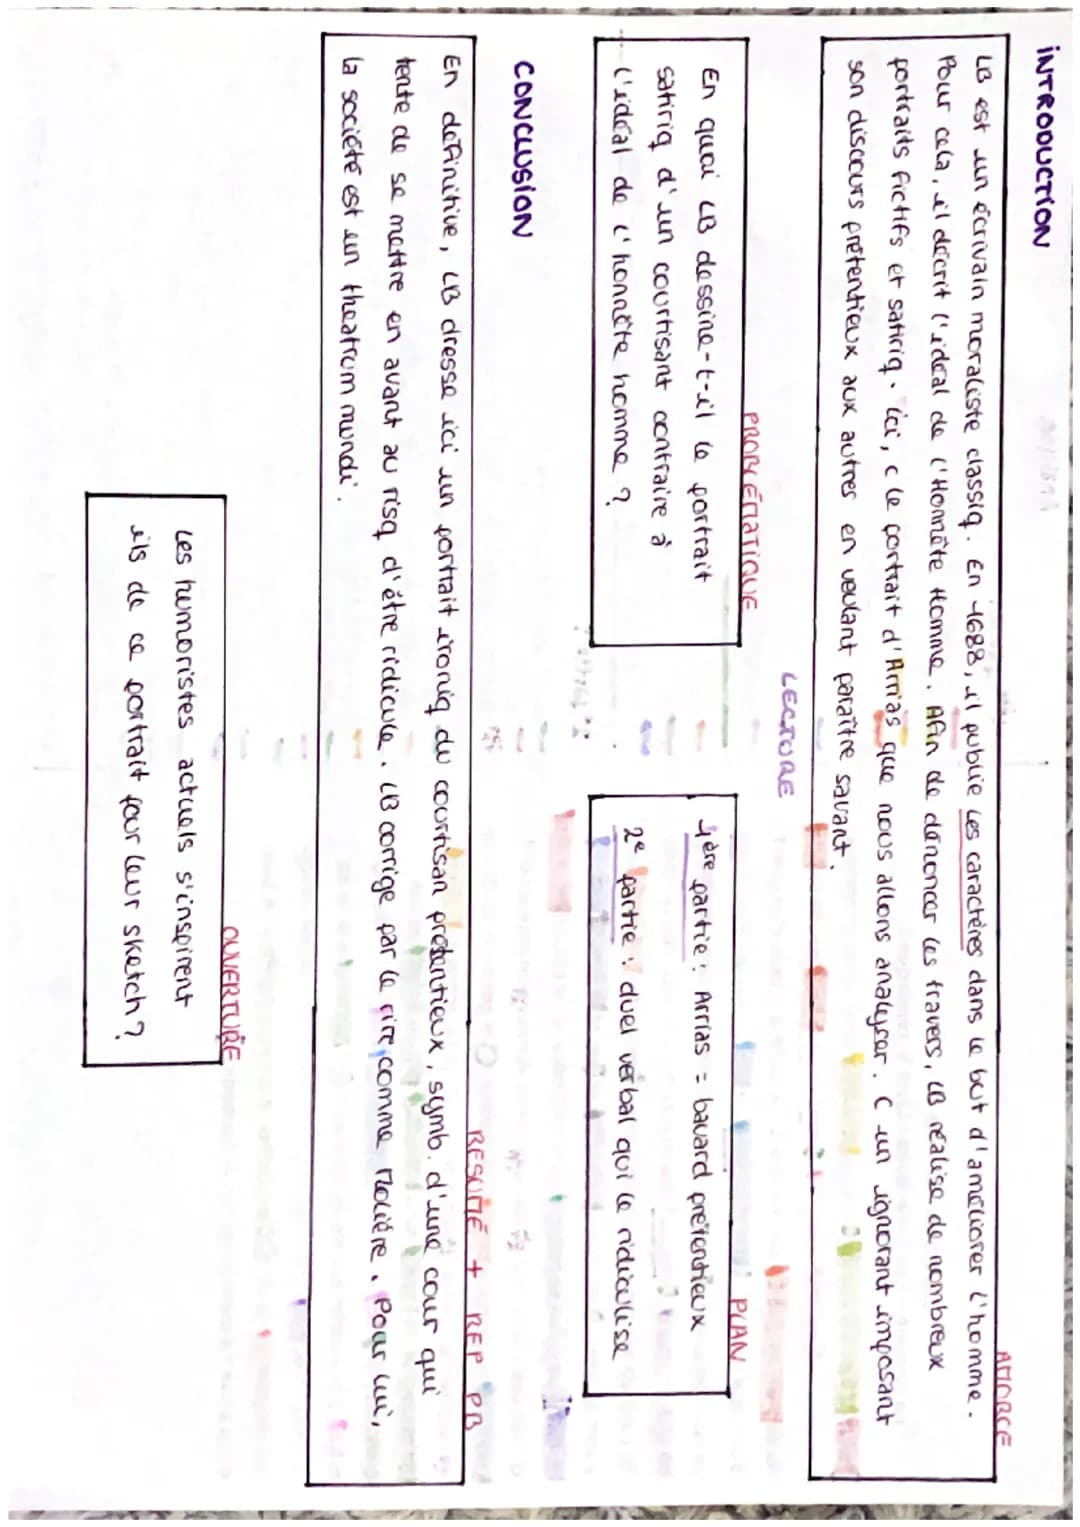 INTRODUCTION
AMORCE
LB est un écrivain moraliste classiq. En 1688, il publie Les caractères dans le but d'améliorer l'homme.
Pour cela, il décrit l'idéal de l'Honnête Homme. Afin de dénoncer les travers, LB réalise de nombreux
portraits fictifs et satiriq. ici, c le portrait d'Arrias que nous allons analyser. C un ignorant imposant
son discours prétentieux aux autres en voulant paraître savant.
LECTURE
PROBLÉMATIQUE
En quoi LB dessine-t-il le portrait
satiriq d'un courtisant contraire à
l'idéal de l'honnête homme ?
PLAN
1ère partie : Arrias = bavard prétentieux
2e partie : duel verbal qui le ridiculise
CONCLUSION
RESUMÉ + REP PB
En définitive, LB dresse ici un portrait ironiq du courtisan prétentieux, symb. d'une cour qui
tente de se mettre en avant au risq d'être ridicule. LB corrige par le rire comme Molière. Pour lui,
la société est un theatrum mundi.
OUVERTURE
Les humoristes actuels s'inspirent
ils de ce portrait pour leur sketch ?